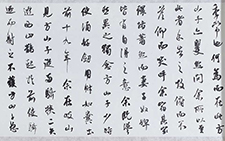 季常也何為而在此方
山子亦矍然問余所以至
此者余告之故俯而不
答仰而笑呼余宿其家
環堵蕭然而妻子奴婢
皆有自得之意余既聳
然異之獨念方山子少時
使酒好劍用財如糞土
前十九年余在岐山
見方山子從兩騎挾二矢
遊西山鵲起於前使騎
逐而射之不獲方山子怒